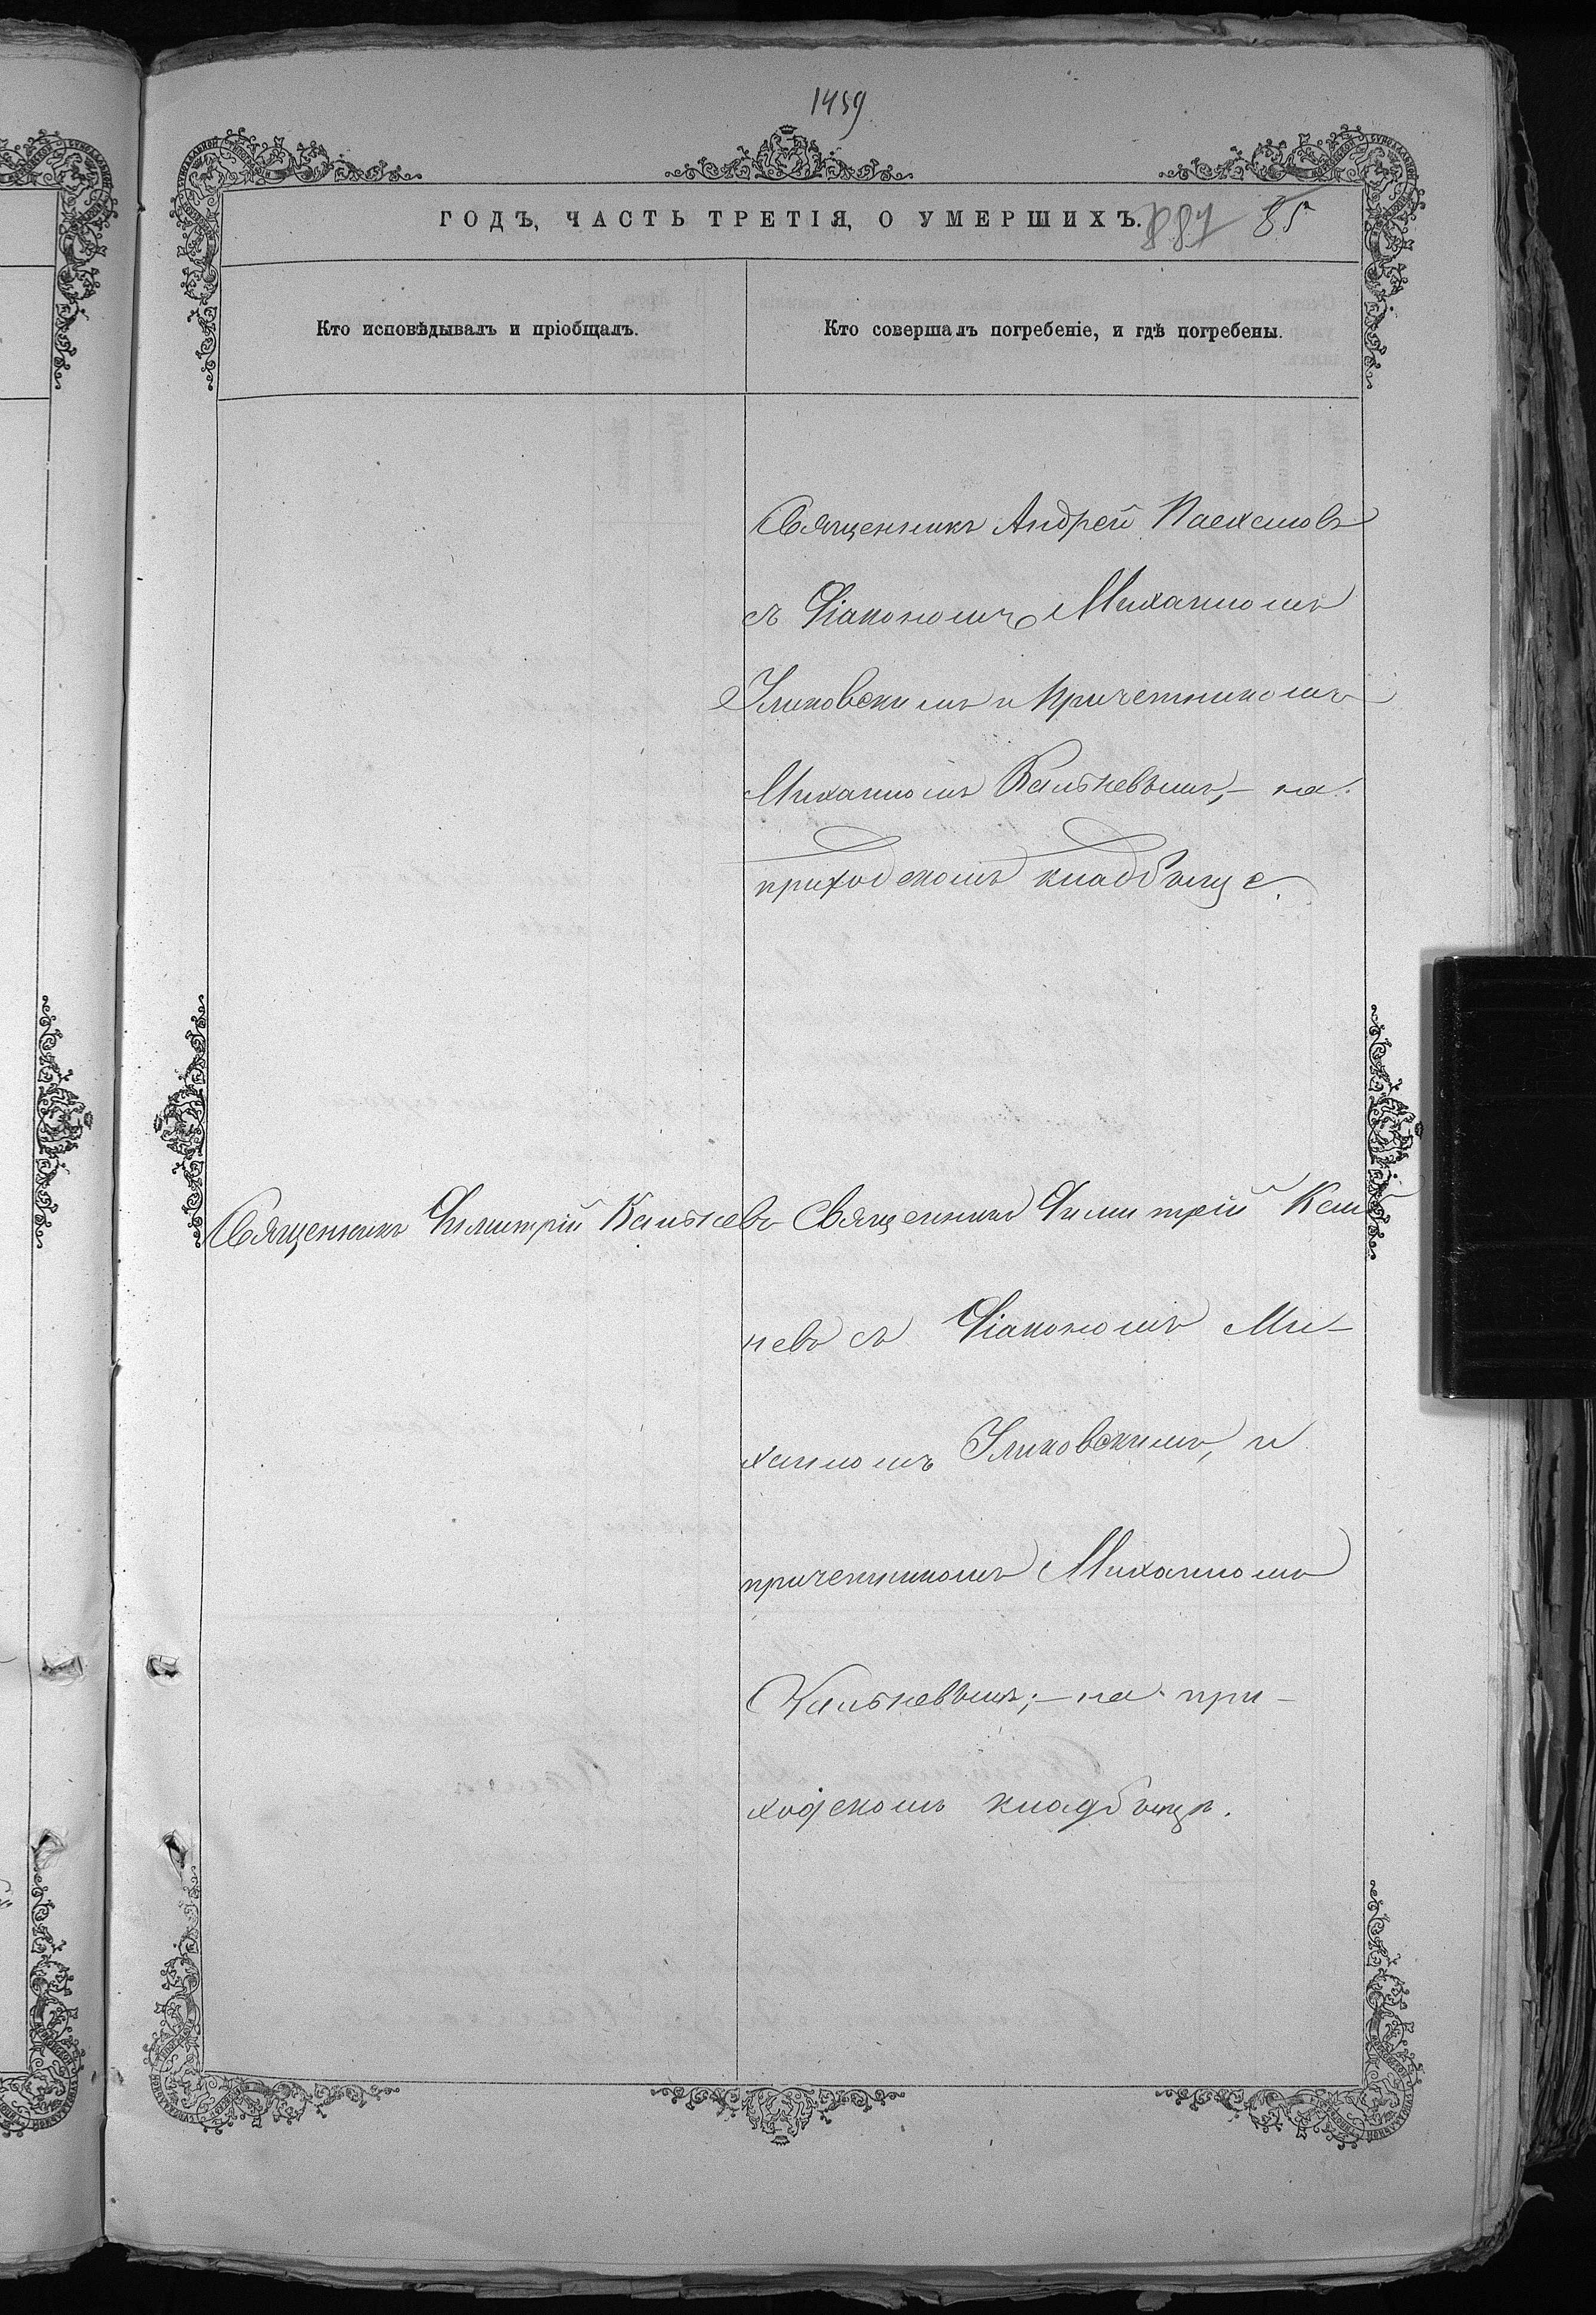 1459
ГОДЪ, ЧАСТЬ ТРЕТІЯ, О УМЕРШИХЪ.
887 85
Кто исповѣдывалъ и пріобщалъ.
Кто совершалъ погребеніе, и гдѣ погребены.
Священникъ Андрей
съ Діакономъ Михаиломъ
Иликовскимъ и Причетникомъ
Михаиломъ Калькевымъ, – на
приходскомъ кладбище.
Священникъ Димитрій Калькевъ
Священникъ Димитрій Каль
кевъ съ Діакономъ Ми-
хаиломъ Иликовскимъ, и
причетникомъ Михаиломъ
Калькевымъ; – на при-
ходскомъ кладбищѣ.